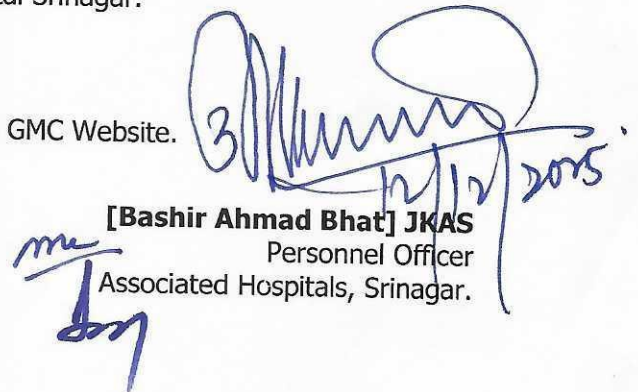 Srinagar.
GMC Website.
12/12/2025
[Bashir Ahmad Bhat] JKAS
Personnel Officer
Associated Hospitals, Srinagar.